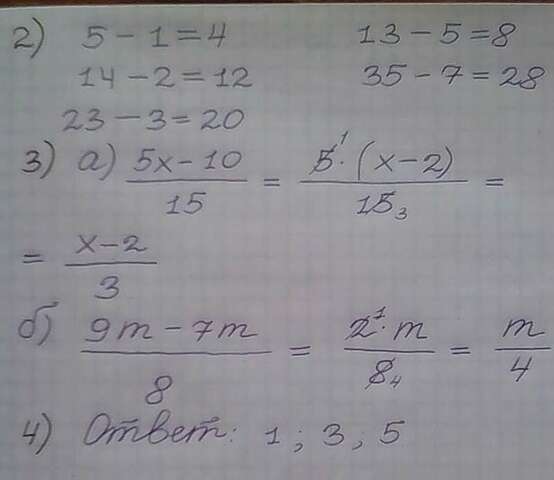 2) 5 - 1 = 4 13 - 5 = 8
14 - 2 = 12 35 - 7 = 28
23 - 3 = 20
3) а) (5x - 10)/15 = (5̸¹ · (x - 2))/(1̸5̸ ₃) =
= (x - 2)/3
б) (9m - 7m)/8 = (2̸¹ · m)/(8̸ ₄) = m/4
4) Ответ: 1; 3; 5